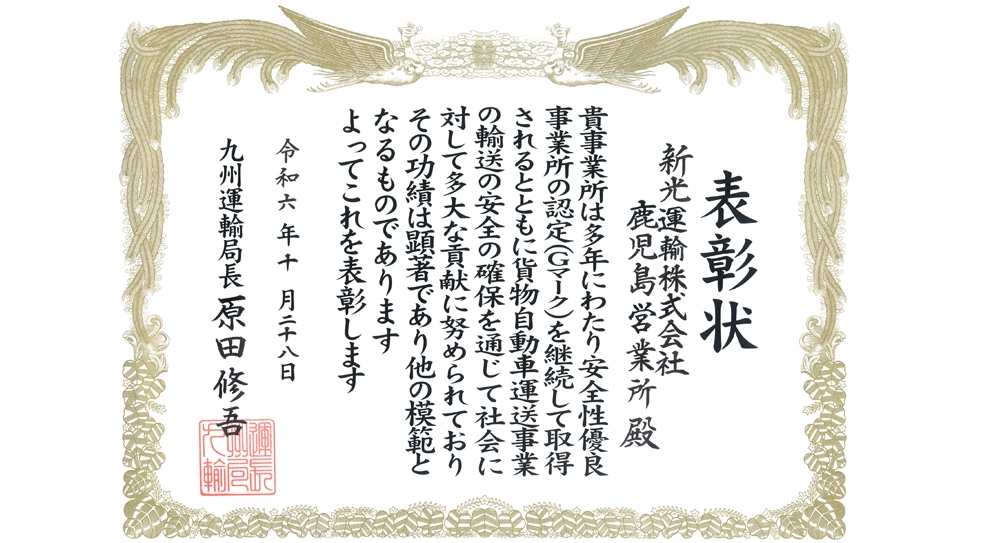 表彰状
新光運輸株式会社
鹿児島営業所 殿
貴事業所は多年にわたり安全性優良
事業所の認定（Gマーク）を継続して取得
されるとともに貨物自動車運送事業
の輸送の安全の確保を通じて社会に
対して多大な貢献に努められており
その功績は顕著であり他の模範と
なるものであります
よってこれを表彰します
令和六年十月二十八日
九州運輸局長 原田修吾